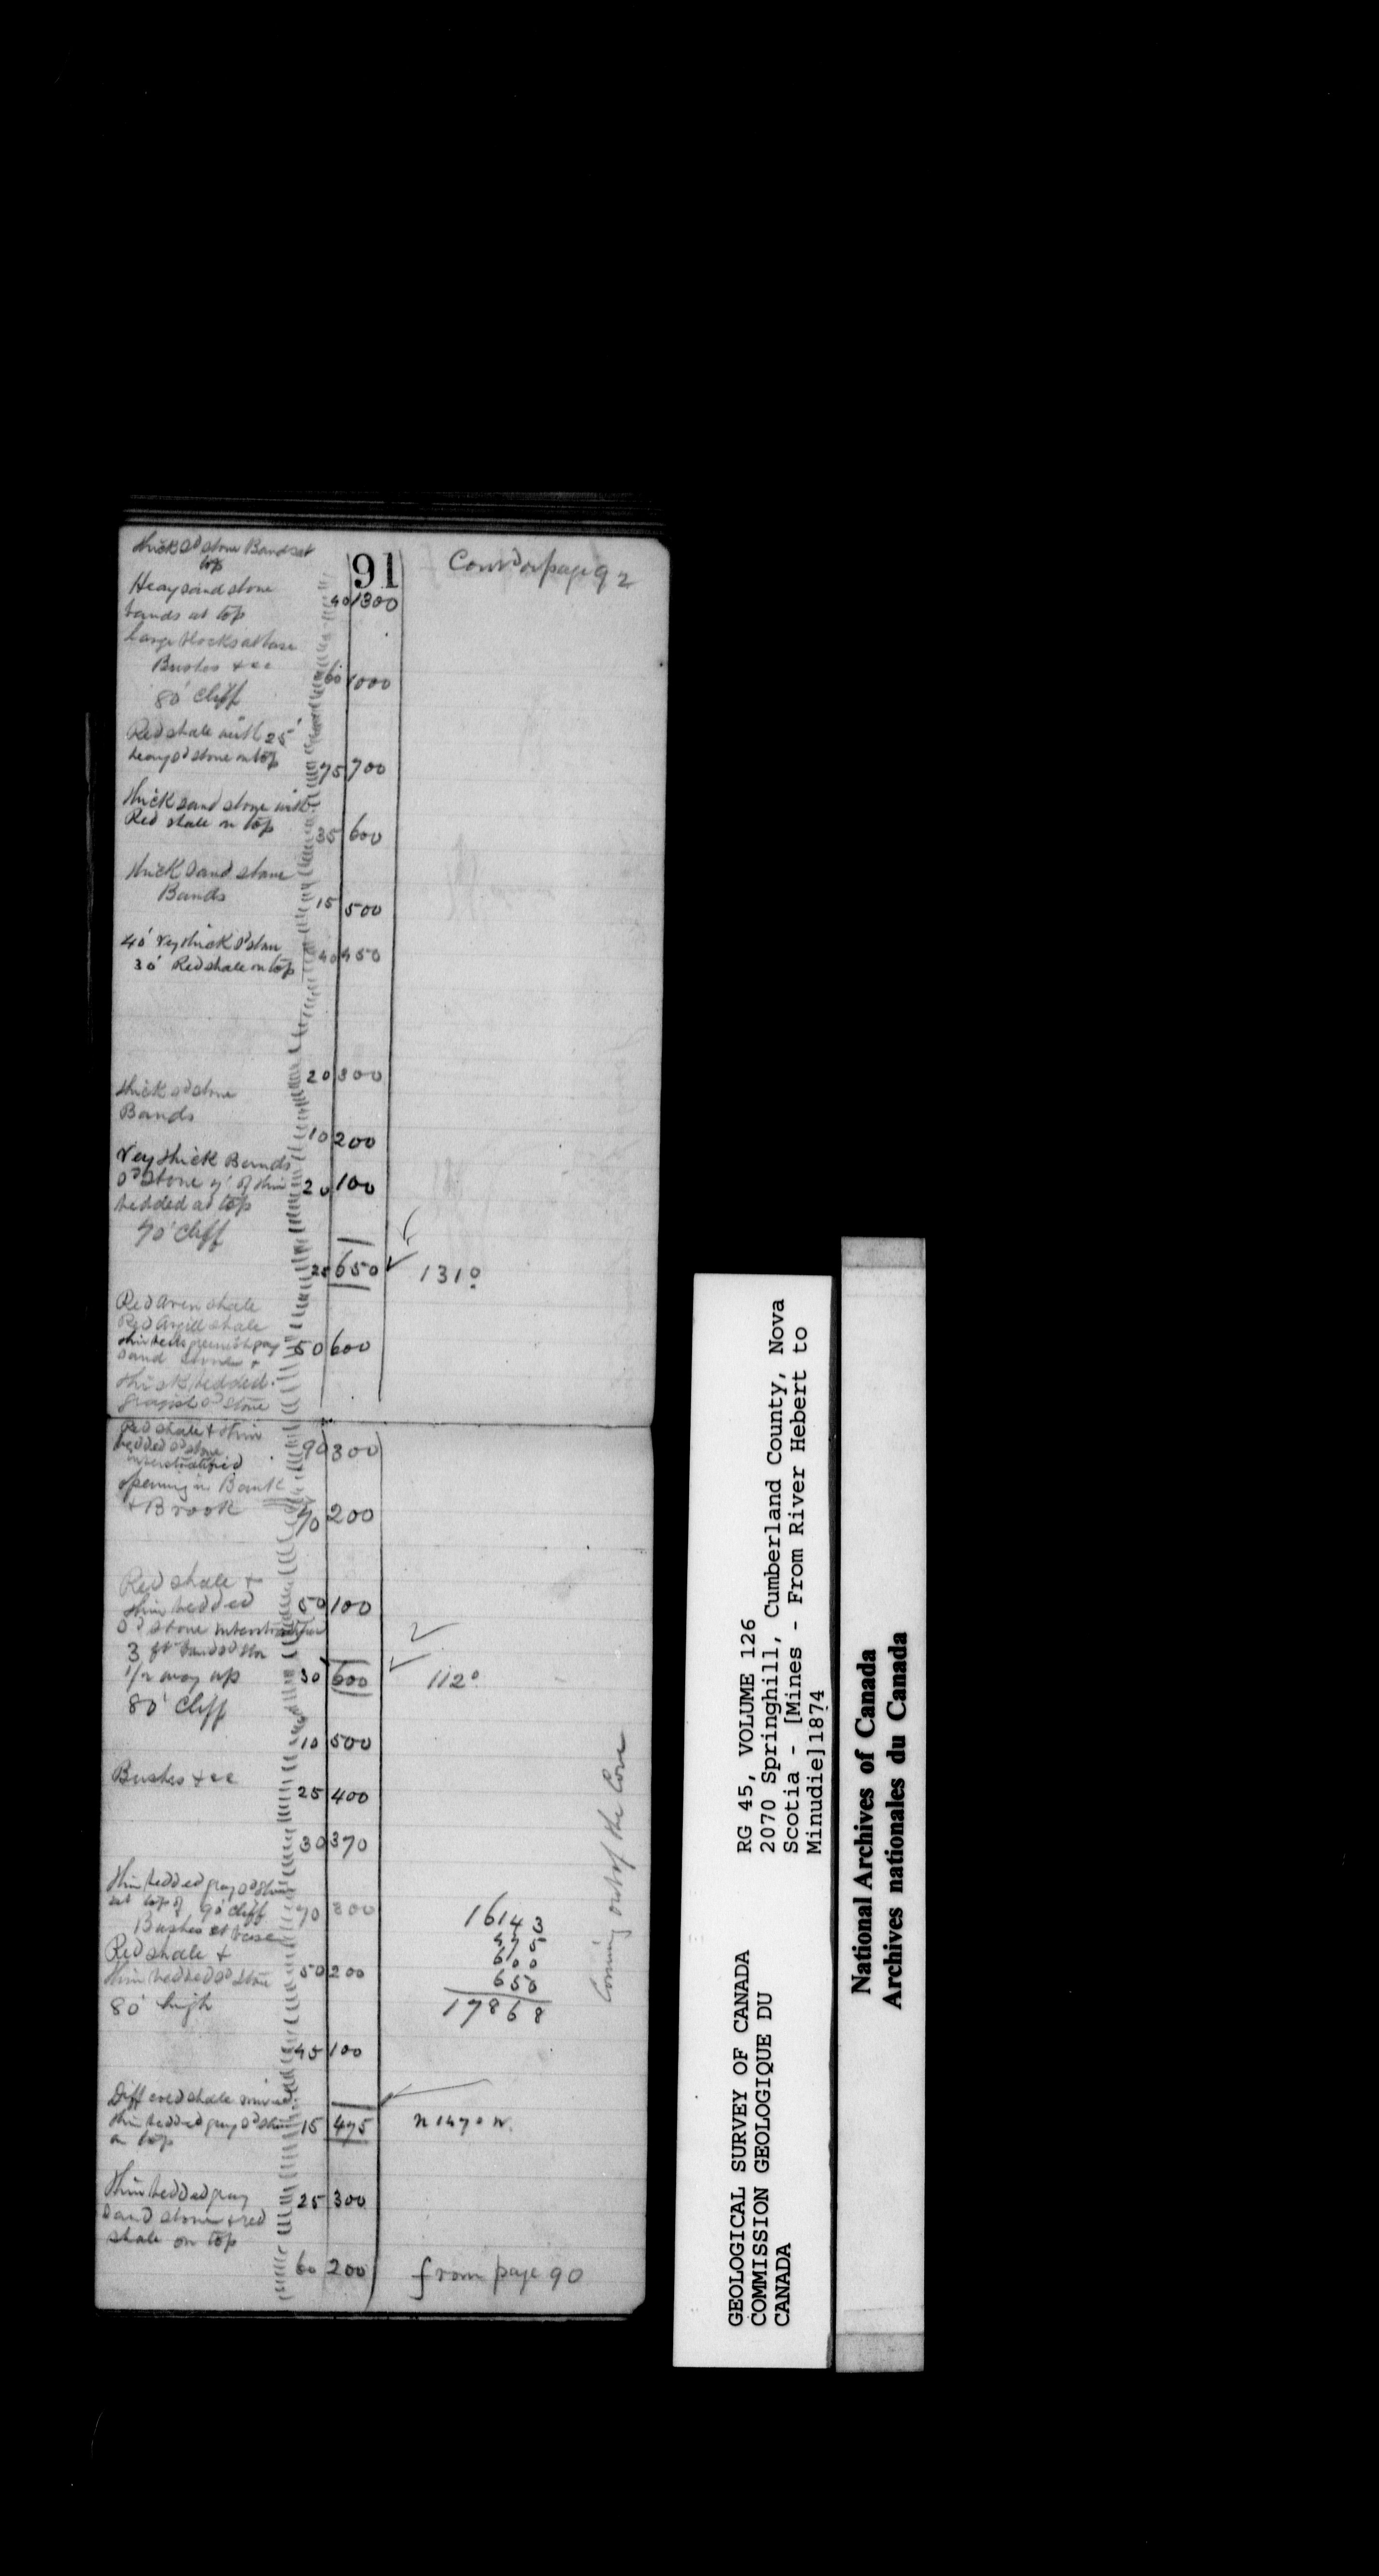 91
Cont'd on page 92
thick Sd stone Bands at
top
Heavy sand stone
bands at top
40 1300
Large blocks at base
Bushes &cc
60 1000
80' cliff
Red shale with 25'
heavy Sd stone on top
75 700
thick sand stone with
Red shale on top
35 600
thick sand stone
Bands
15 500
40' Very thick Sd stone
30' Red shale on top
40 450
20 300
thick Sd stone
Bands
10 200
Very thick Bands
Sd stone of thin
bedded at top
20 100
70' cliff
25 650 131°
Red aren shale
Red Argill shale
sand stones +
50 600
thick bedded
grayish Sd stone
Red shale + thin
bedded Sd stone
interstratified
90 300
opening in Bank
+ Brook
70 200
Red shale +
thin bedded
50 100
Sd stone interstratified
3 ft band Sd stone
1/2 way up
30 600 112°
80' cliff
10 500
Bushes &cc
25 400
30 370
thin bedded gray Sd stone
at top of 90' cliff
70 300
Bushes at base
Red shale +
thin bedded Sd stone
50 200
80' high
16143
475
600
650
17868
Coming out of the Cove
45 100
Diff cold shale
thin bedded gray Sd stone
on top
15 475 n 147° W.
thin bedded gray
sand stone + red
shale on top
25 300
60 200
from page 90
GEOLOGICAL SURVEY OF CANADA
COMMISSION GEOLOGIQUE DU
CANADA
RG 45, VOLUME 126
2070 Springhill, Cumberland County, Nova
Scotia - [Mines - From River Hebert to
Minudie]1874
National Archives of Canada
Archives nationales du Canada